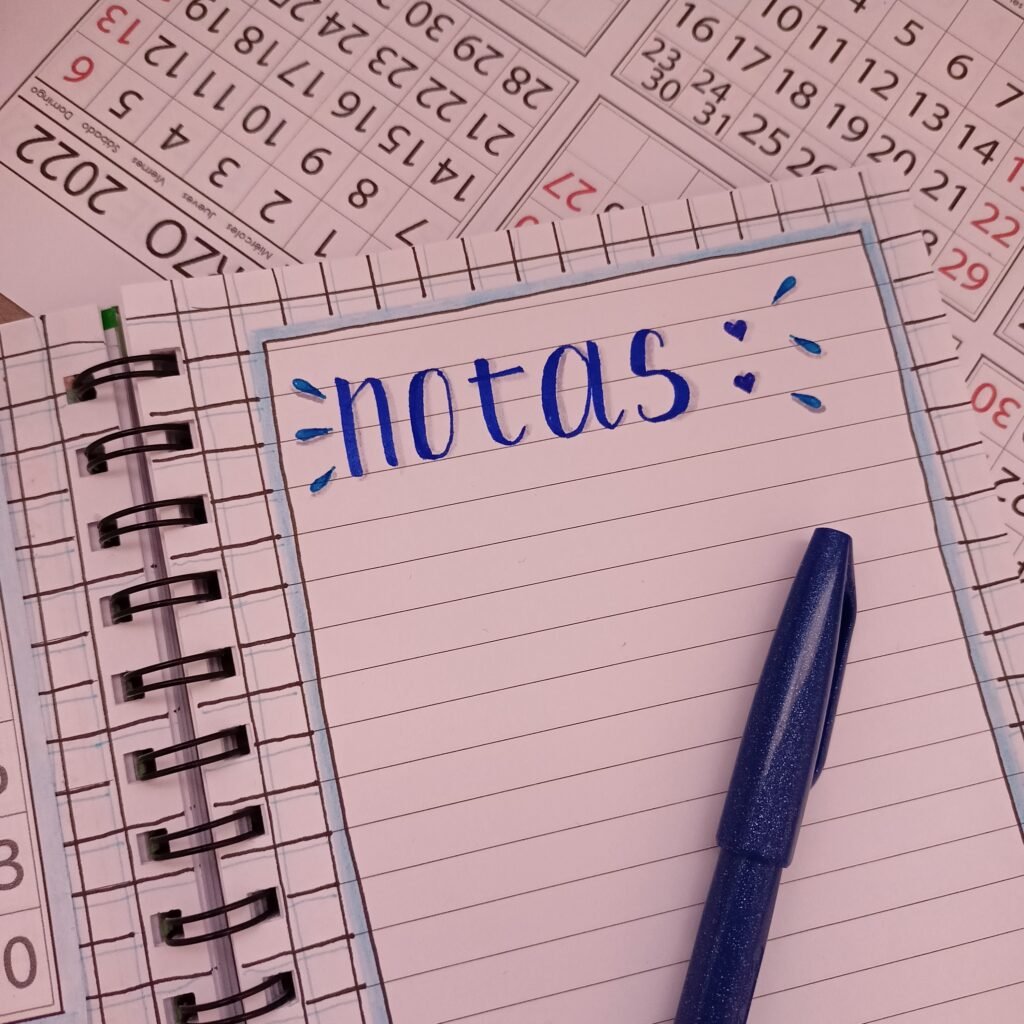 notas :
ZO 2022
Miércoles Jueves Viernes Sábado Domingo
1 2 3 4 5 6
7 8 9 10 11 12 13
14 15 16 17 18 19
21 22 23 24
28 29 30
4 5 6 7
10 11 12 13 14
16 17 18 19 20 21 22
23 24 25 26 29
30 31
27
30